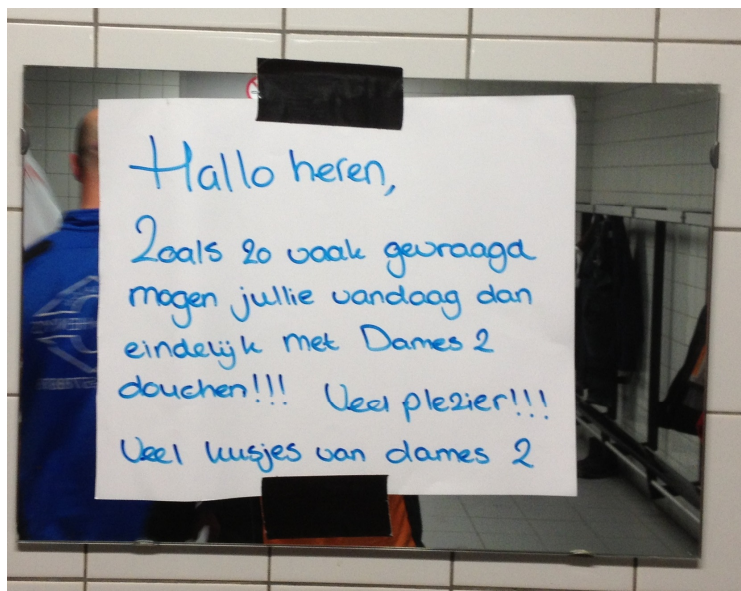 Hallo heren,
Zoals zo vaak gevraagd
mogen jullie vandaag dan
eindelijk met Dames 2
douchen!!! Veel plezier!!!
Veel kusjes van dames 2